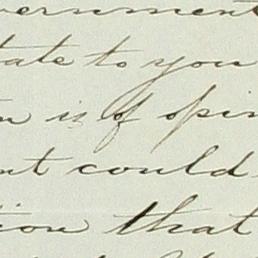 vernment
tate to you
n is of opin
nt could
tion that